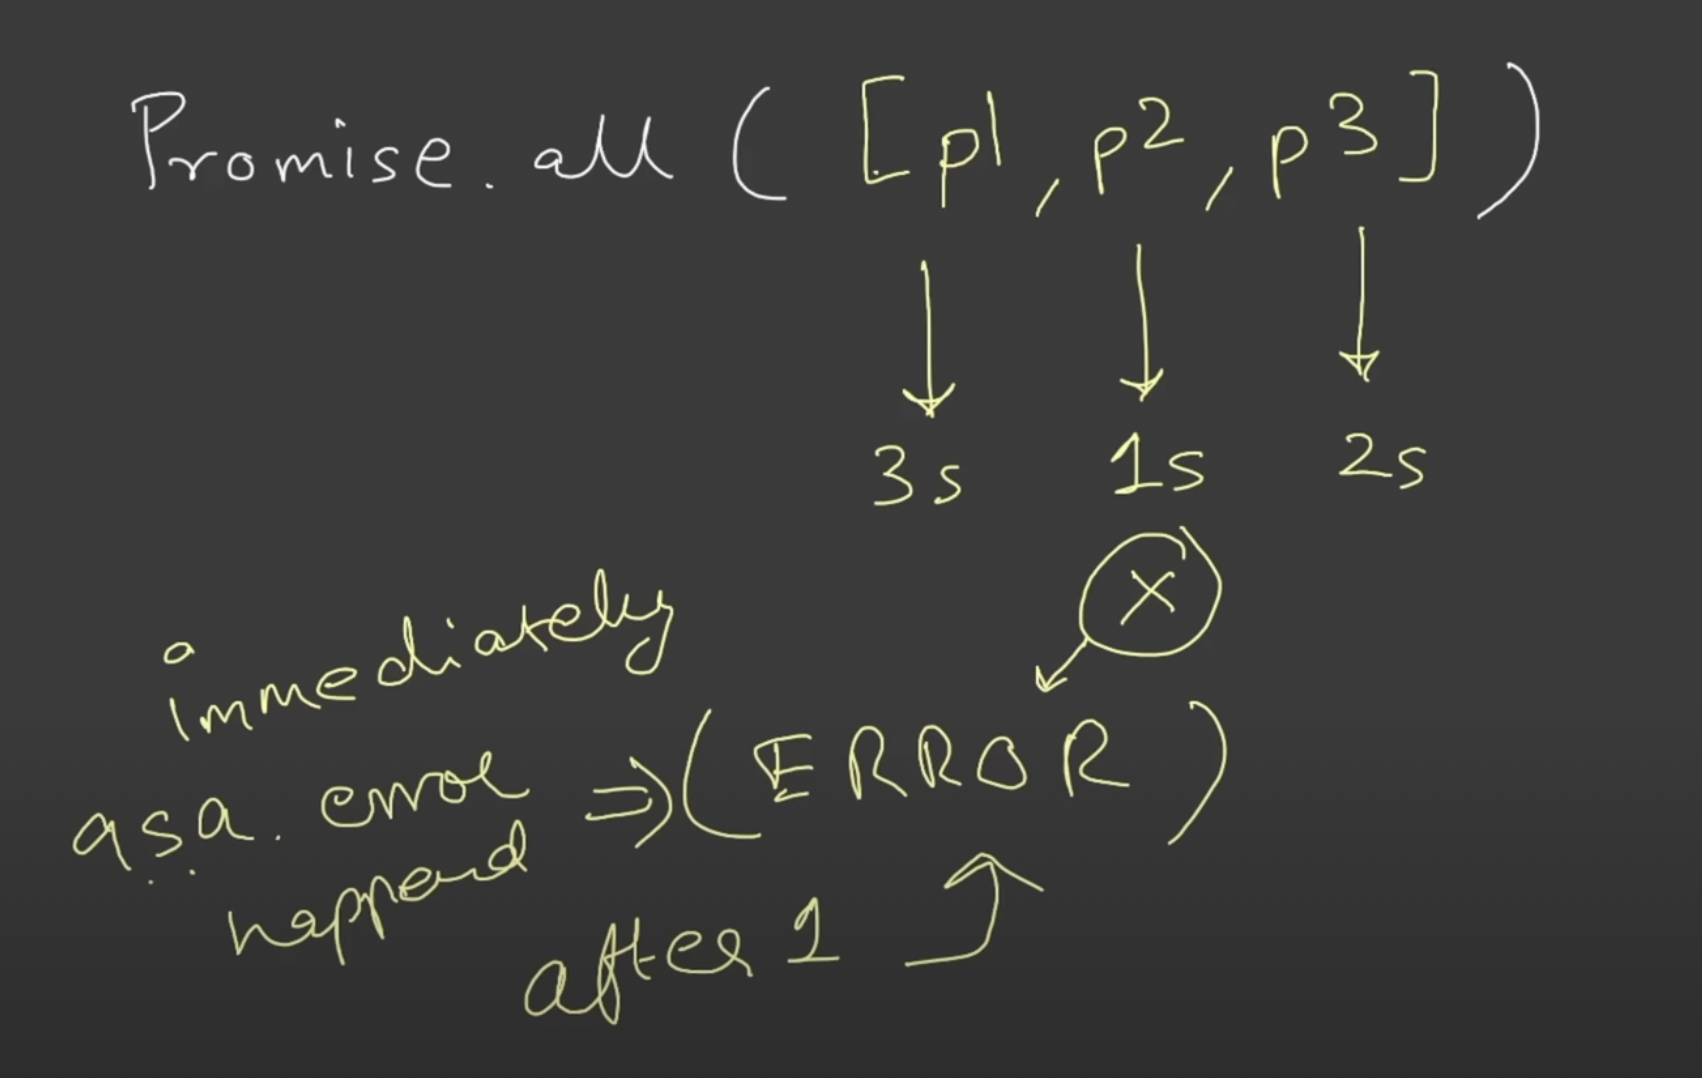 Promise.all ( [p1, p2, p3] )
3s 1s 2s
X
immediately
asa. error
happend => (ERROR)
after 1